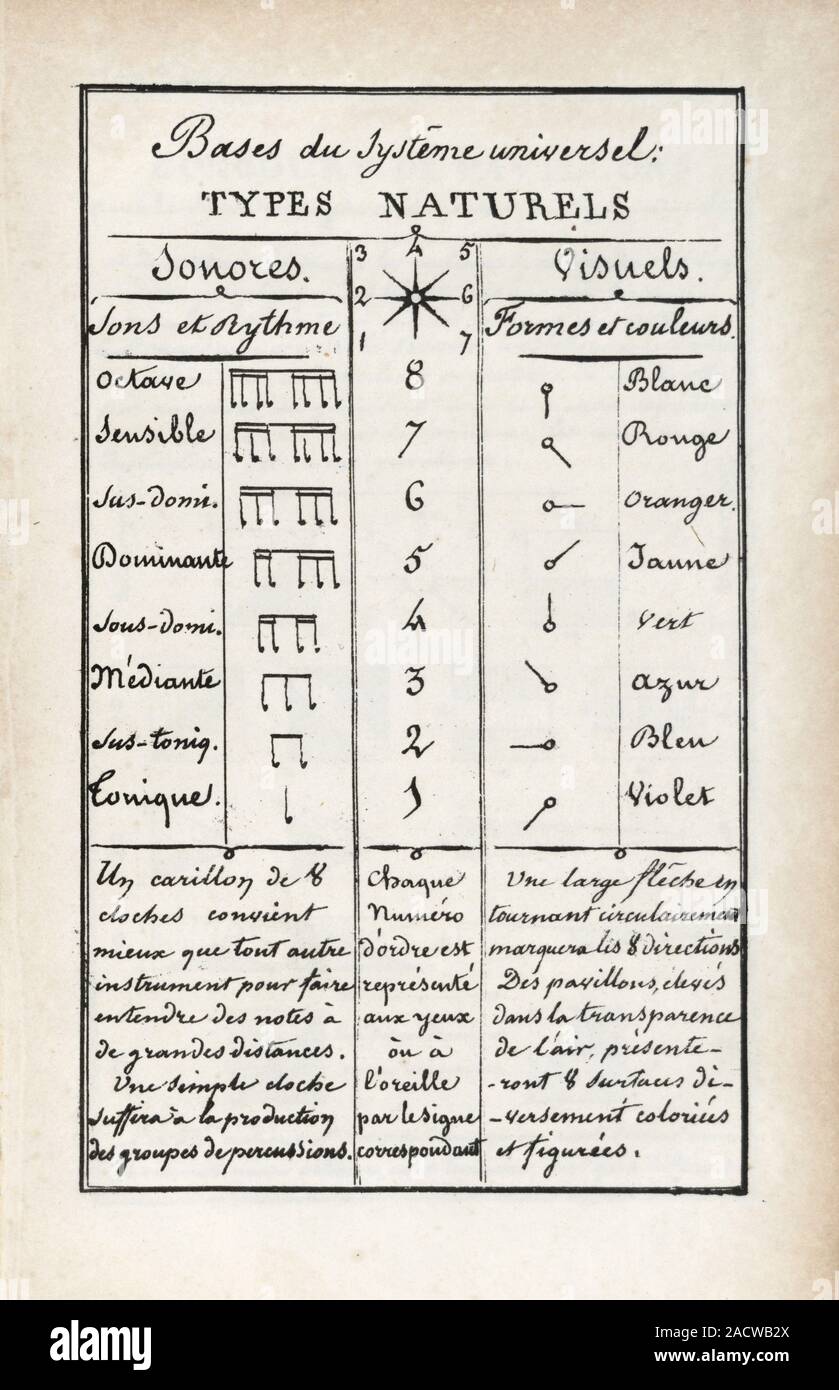 Bases du Système universel:
TYPES NATURELS
Sonores.
3 4 5
2 6
1 7
Visuels.
Sons et Rythme
Formes et couleurs.
Octave 8 Blanc
Sensible 7 Rouge
Sus-domi. 6 Oranger.
Dominante 5 Jaune
Sous-domi. 4 Vert
Médiante 3 azur
Sus-toniq. 2 Bleu
Tonique. 1 Violet
Un carillon de 8
cloches convient
mieux que tout autre
instrument pour faire
entendre des notes à
de grandes distances.
Une simple cloche
suffira à la production
des groupes de percussions.
Chaque
Numéro
d'ordre est
représenté
aux yeux
òu à
l'oreille
par le signe
correspondant
Une large flêche en
tournant circulairement
marquera les 8 directions
Des pavillons, elevés
dans la transparence
de l'air, présente-
-ront 8 surfaces di-
-versement coloriées
et figurées.
alamy
Image ID: 2ACWB2X
www.alamy.com